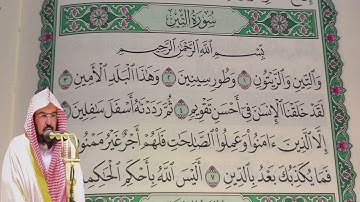 سُورَةُ التِّينِ
بِسْمِ اللَّهِ الرَّحْمَٰنِ الرَّحِيمِ
وَالتِّينِ وَالزَّيْتُونِ ١ وَطُورِ سِينِينَ ٢ وَهَٰذَا الْبَلَدِ الْأَمِينِ ٣
لَقَدْ خَلَقْنَا الْإِنسَٰنَ فِي أَحْسَنِ تَقْوِيمٍ ٤ ثُمَّ رَدَدْنَٰهُ أَسْفَلَ سَٰفِلِينَ ٥
إِلَّا الَّذِينَ ءَامَنُوا وَعَمِلُوا الصَّٰلِحَٰتِ فَلَهُمْ أَجْرٌ غَيْرُ مَمْنُونٍ
فَمَا يُكَذِّبُكَ بَعْدُ بِالدِّينِ ٧ أَلَيْسَ اللَّهُ بِأَحْكَمِ الْحَٰكِمِينَ